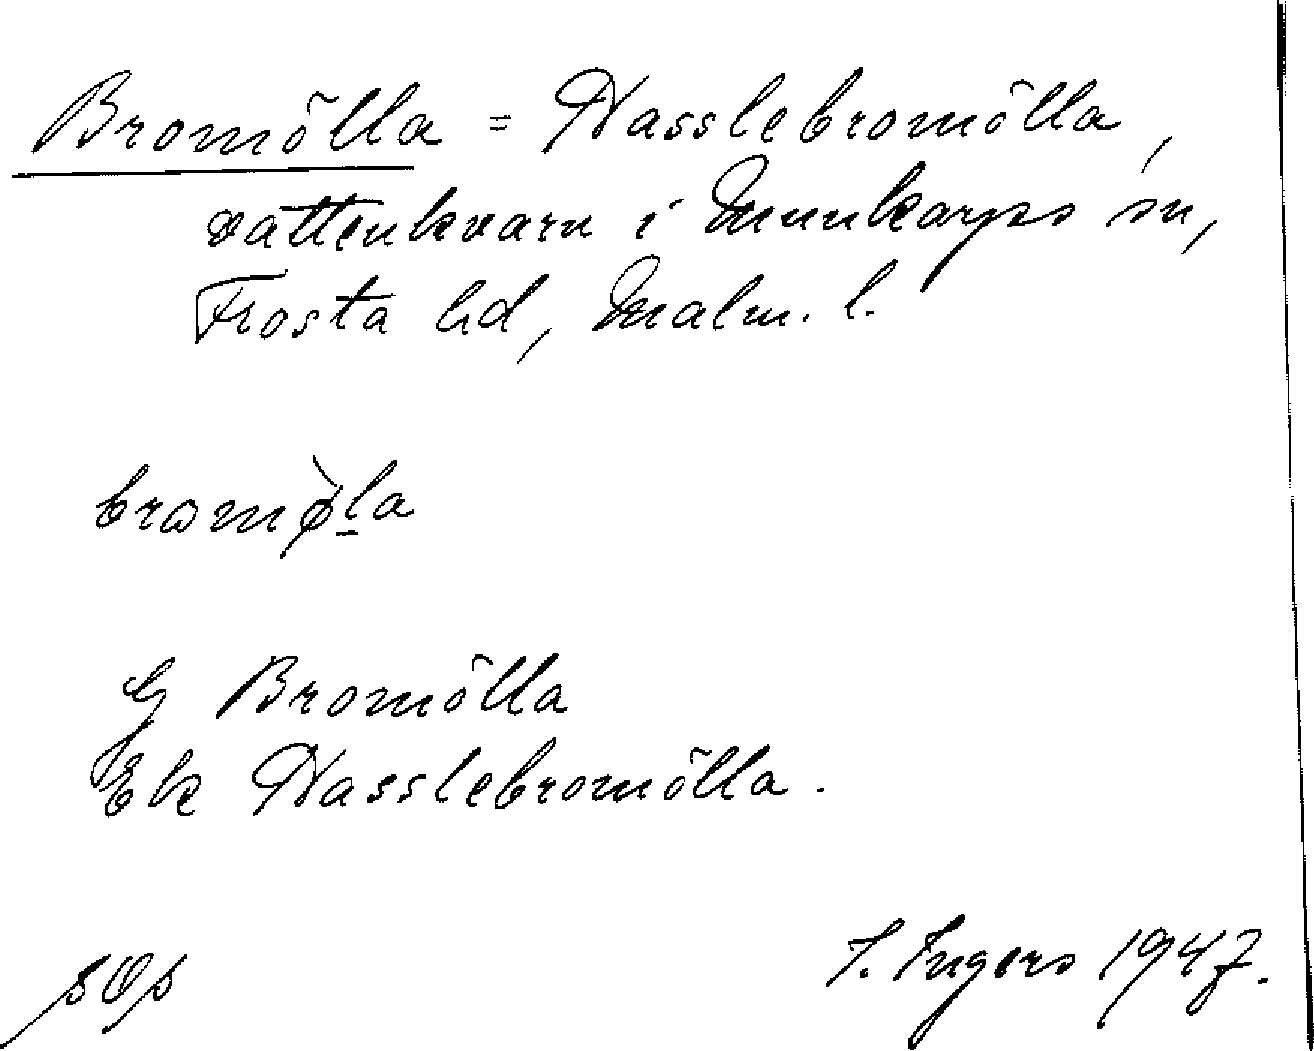 Bromölla = Hasslebromölla,
vattenkvarn i Munkarps sn,
Frosta hd, Malm. l.
bromø̀la
G Bromölla
Ek Hasslebromölla.
I. Ingers 1947.